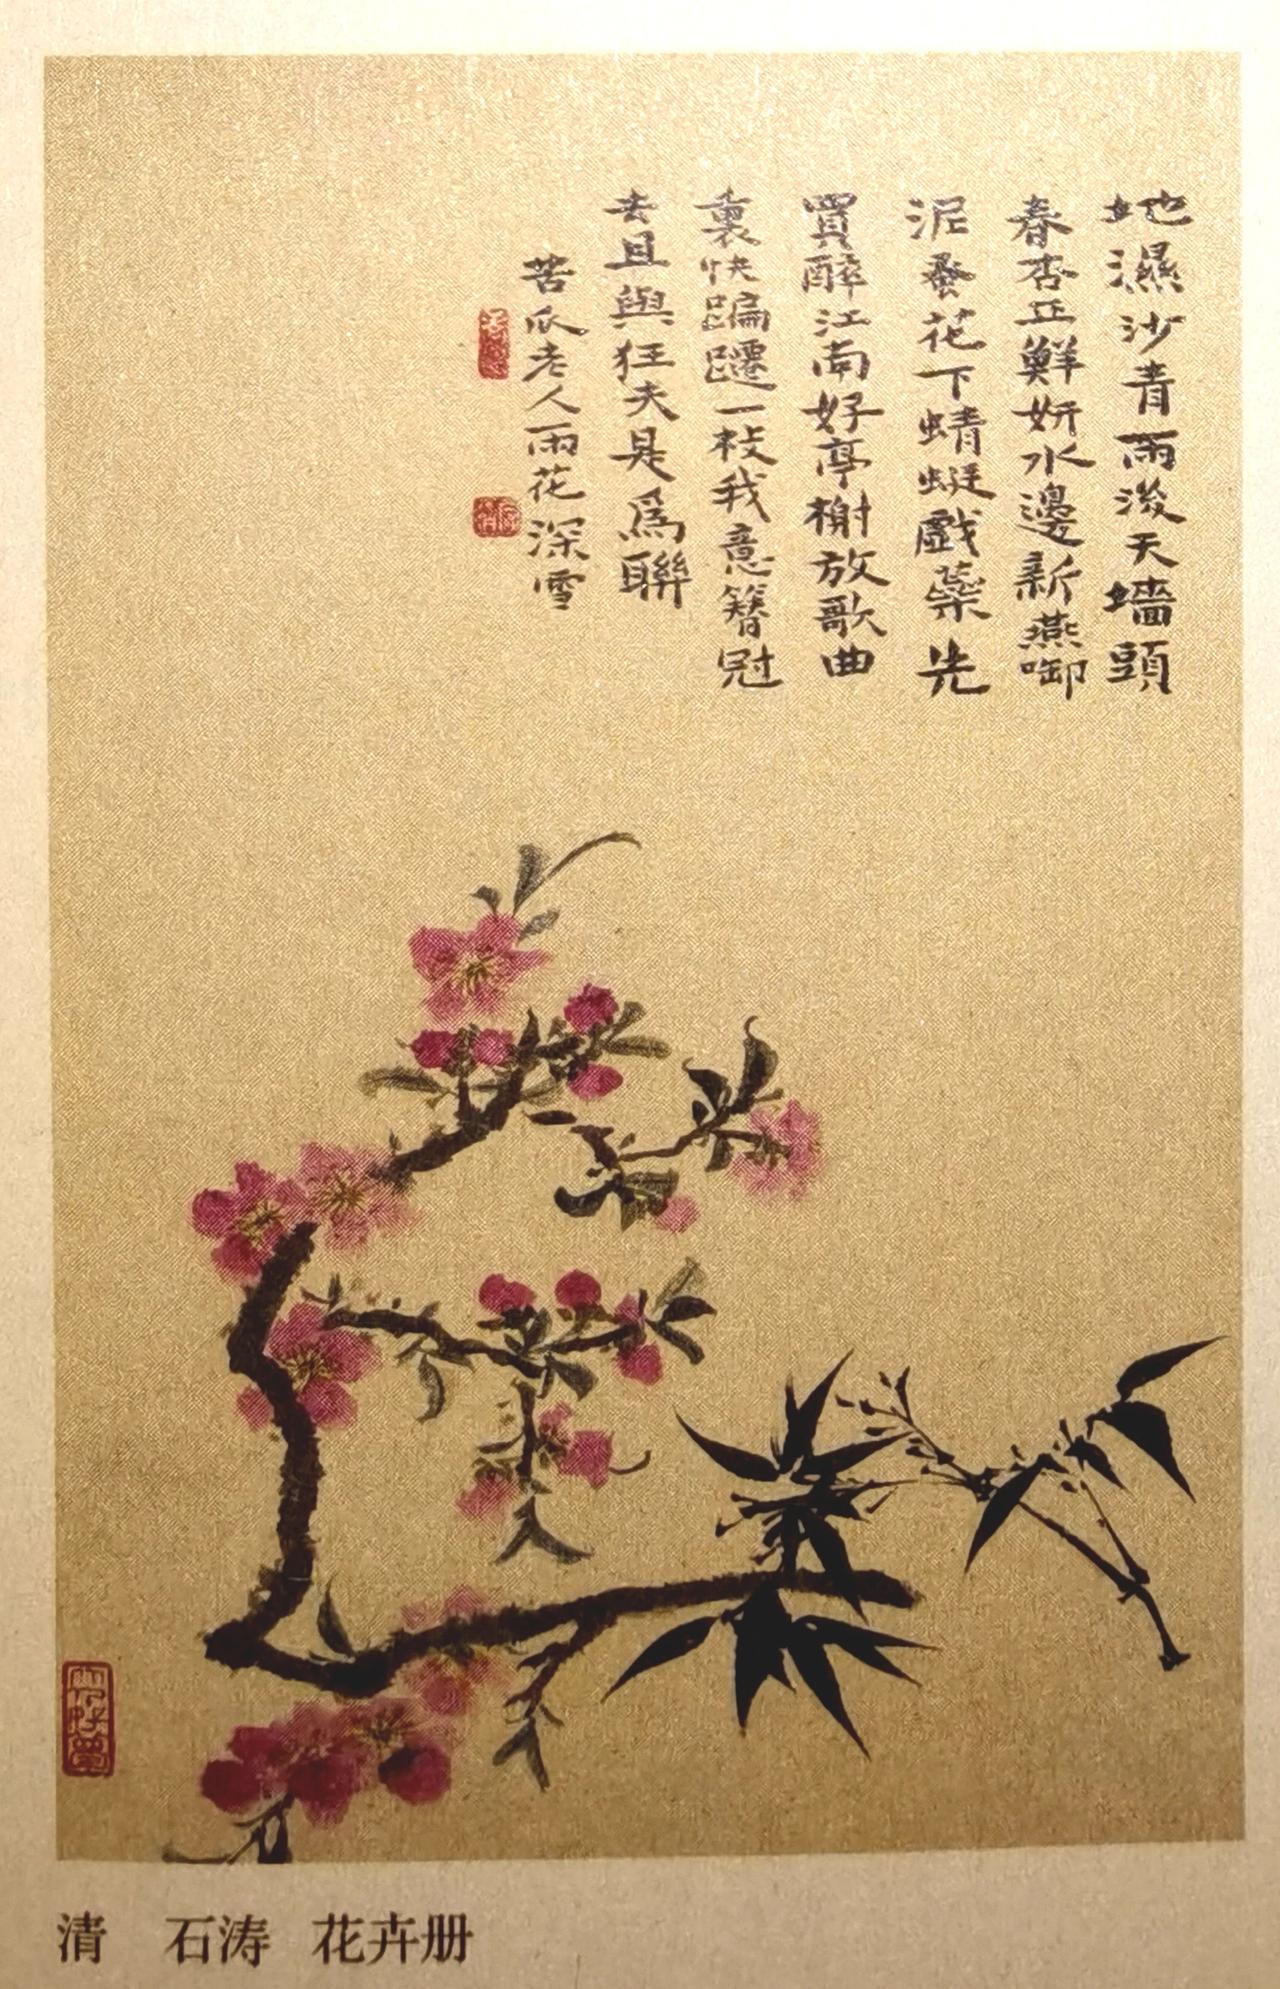 地濕沙青雨後天墻頭
春杏正鮮妍水邊新燕啣
泥蚤花下蜻蜓戲蘂先
買醉江南好亭榭放歌曲
裏快蹁躚一枝我意簪冠
去且與狂夫是爲聯
苦瓜老人雨花深雪
清 石涛 花卉册